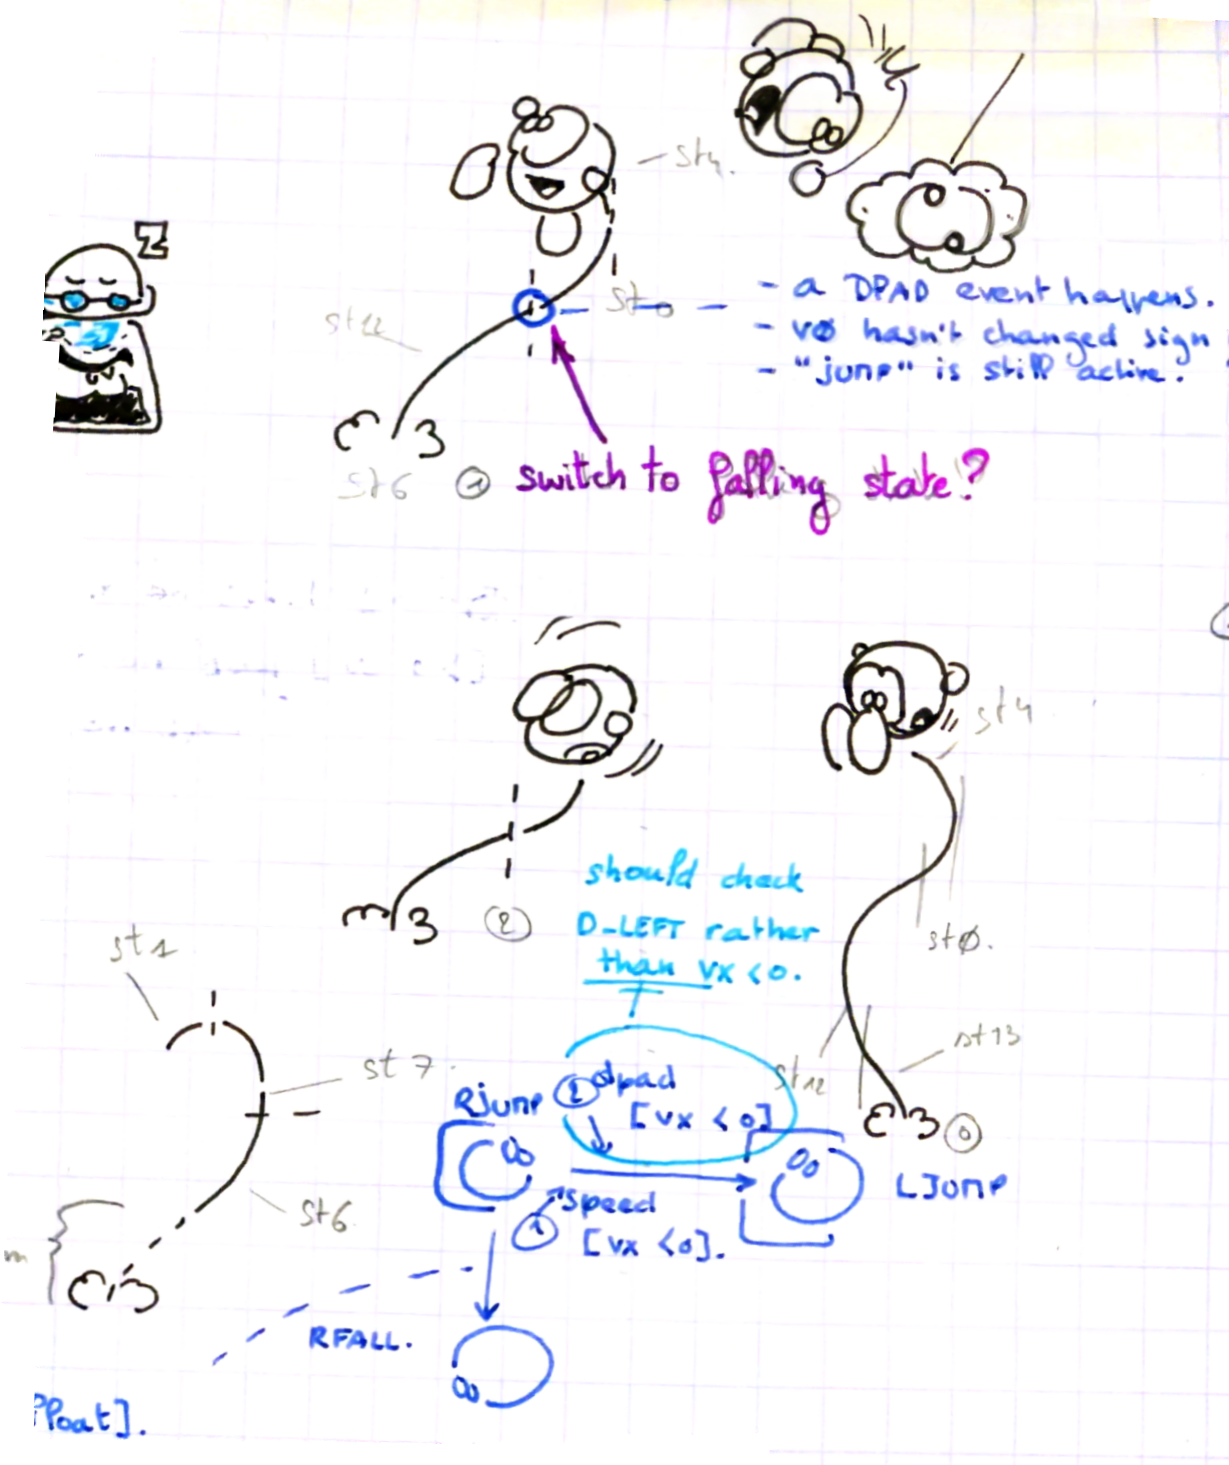 Z
st4.
st0
- a DPAD event happens.
- vø hasn't changed sign
- "jump" is still active.
st12
st6
1 switch to falling state?
st4
should check
D-LEFT rather
than vx <0.
2
stø.
st1
st13
st12
st7.
Rjump
2 dpad
[vx <0]
0
LJump
st6
1 speed
[vx <0].
m
RFALL.
float].